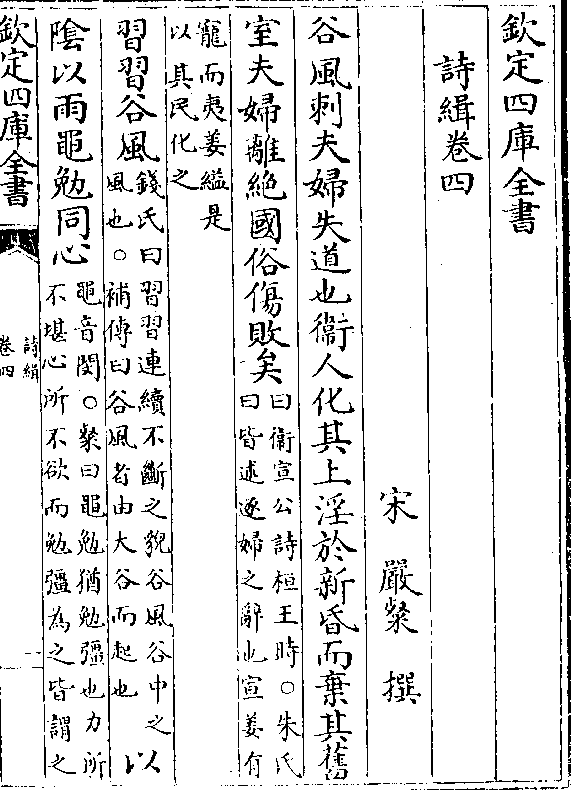 欽定四庫全書
詩緝卷四
宋 嚴粲 撰
谷風刺夫婦失道也衞人化其上淫於新昏而棄其舊
室夫婦離絶國俗傷敗矣
曰衞宣公詩桓王時○朱氏
曰皆述逐婦之辭也宣姜有
寵而夷姜縊是
以其民化之
習習谷風
錢氏曰習習連續不斷之貌谷風谷中之
風也○補傳曰谷風者由大谷而起也
以
陰以雨黽勉同心
黽音閔○粲曰黽勉猶勉彊也力所
不堪心所不欲而勉彊為之皆謂之
欽定四庫全書
詩緝
卷四